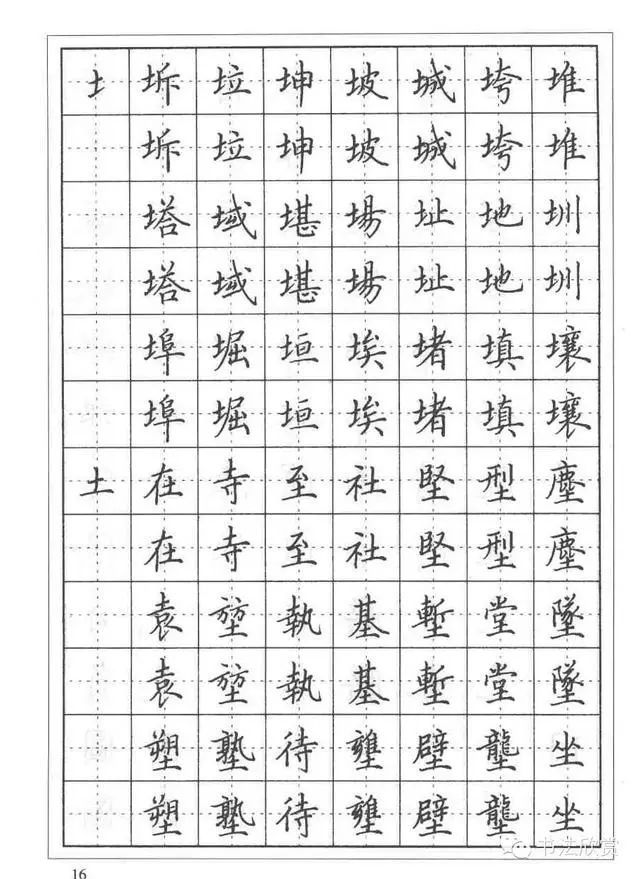 土 坼 垃 坤 坡 城 垮 堆
坼 垃 坤 坡 城 垮 堆
塔 域 堪 場 址 地 圳
塔 域 堪 場 址 地 圳
埠 堀 垣 埃 堵 填 壤
埠 堀 垣 埃 堵 填 壤
土 在 寺 至 社 堅 型 塵
在 寺 至 社 堅 型 塵
袁 堃 執 基 塹 堂 墜
袁 堃 執 基 塹 堂 墜
塑 塾 待 壅 壁 壟 坐
塑 塾 待 壅 壁 壟 坐
书法欣赏
16